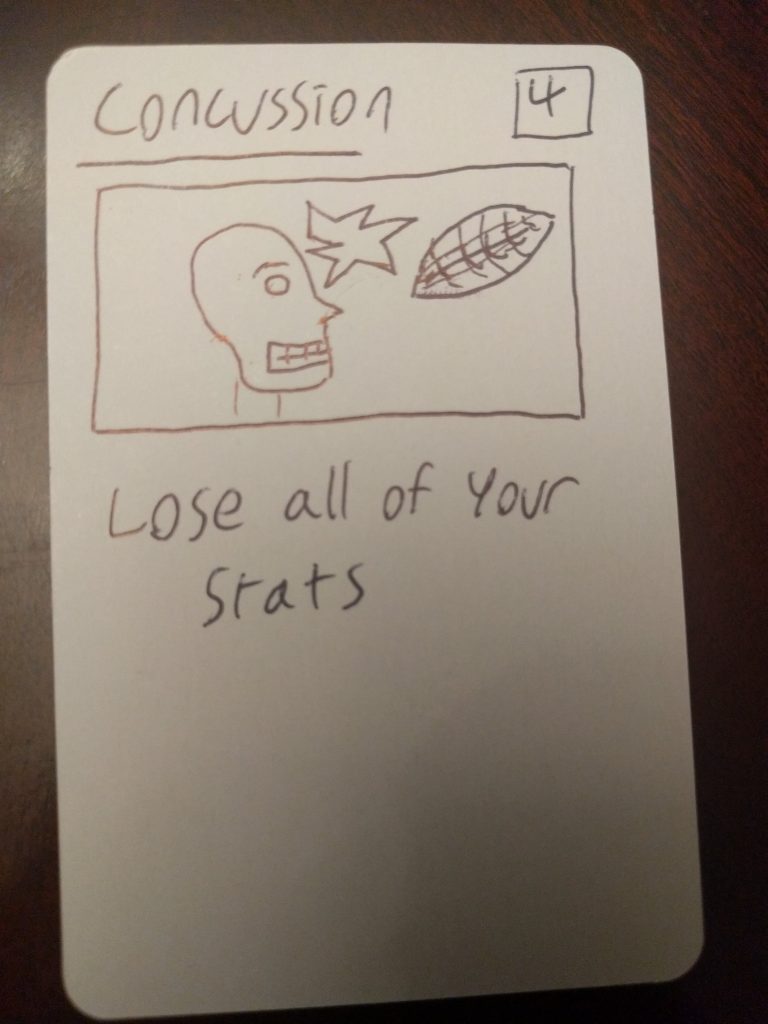 Concussion
4
Lose all of Your
Stats